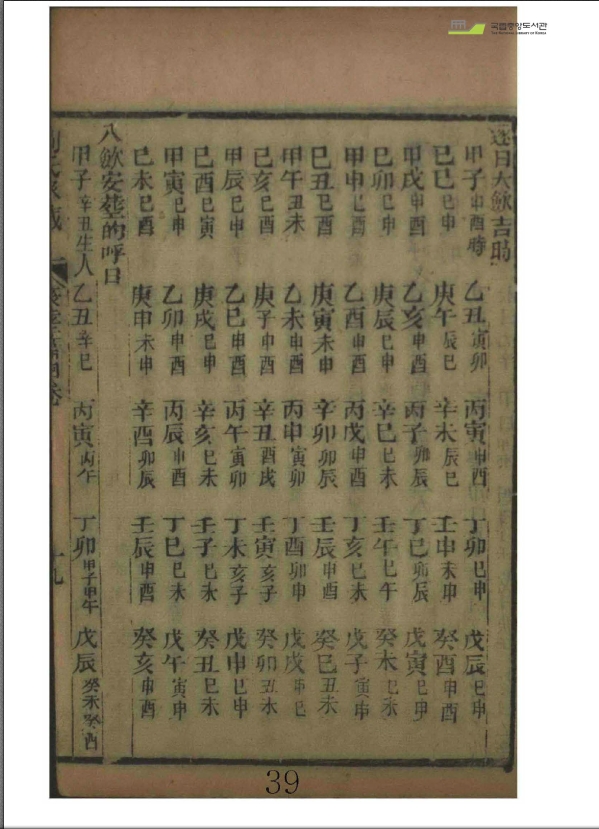 국립중앙도서관
THE NATIONAL LIBRARY OF KOREA
逐日大歛吉時
甲子申酉時 乙丑寅卯 丙寅申酉 丁卯巳申 戊辰巳申
己巳巳申 庚午辰巳 辛未辰巳 壬申未申 癸酉申酉
甲戌申酉 乙亥巳酉 丙子卯辰 丁巳卯辰 戊寅巳申
己卯巳申 庚辰巳申 辛巳巳未 壬午巳午 癸未巳未
甲申巳酉 乙酉申酉 丙戌申酉 丁亥巳未 戊子寅申
己丑巳酉 庚寅未申 辛卯卯辰 壬辰申酉 癸巳丑未
甲午丑未 乙未申酉 丙申寅卯 丁酉卯申 戊戌申巳
己亥巳酉 庚子申酉 辛丑酉戌 壬寅亥子 癸卯丑未
甲辰巳申 乙巳申酉 丙午寅卯 丁未亥子 戊申巳申
己酉巳寅 庚戌巳申 辛亥巳未 壬子巳未 癸丑巳未
甲寅巳申 乙卯申酉 丙辰申酉 丁巳巳未 戊午寅申
己未巳酉 庚申未申 辛酉卯辰 壬辰申酉 癸亥申酉
入歛安塟的呼日
甲子辛丑生人 乙丑辛巳 丙寅丙午 丁卯甲子甲午 戊辰癸未癸酉
十九
39